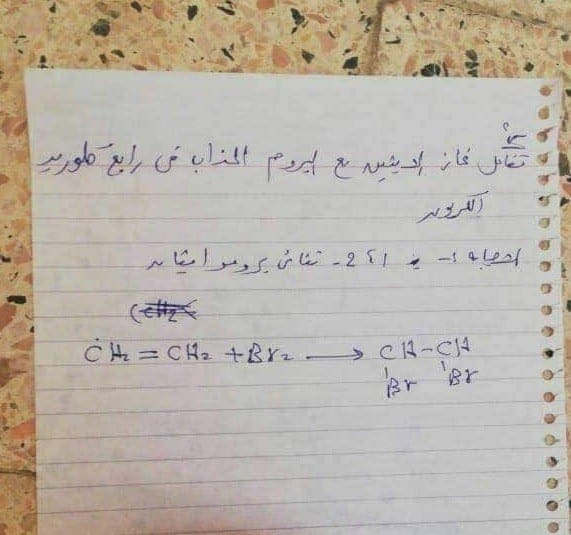 س؟
تفاعل غاز الاثيلين مع البروم المذاب في رابع كلوريد
الكربون
الاجابة 1- 1، 2- ثنائي برومو ايثان
CH₂ = CH₂ + Br₂ ⟶ CH-CH
Br Br